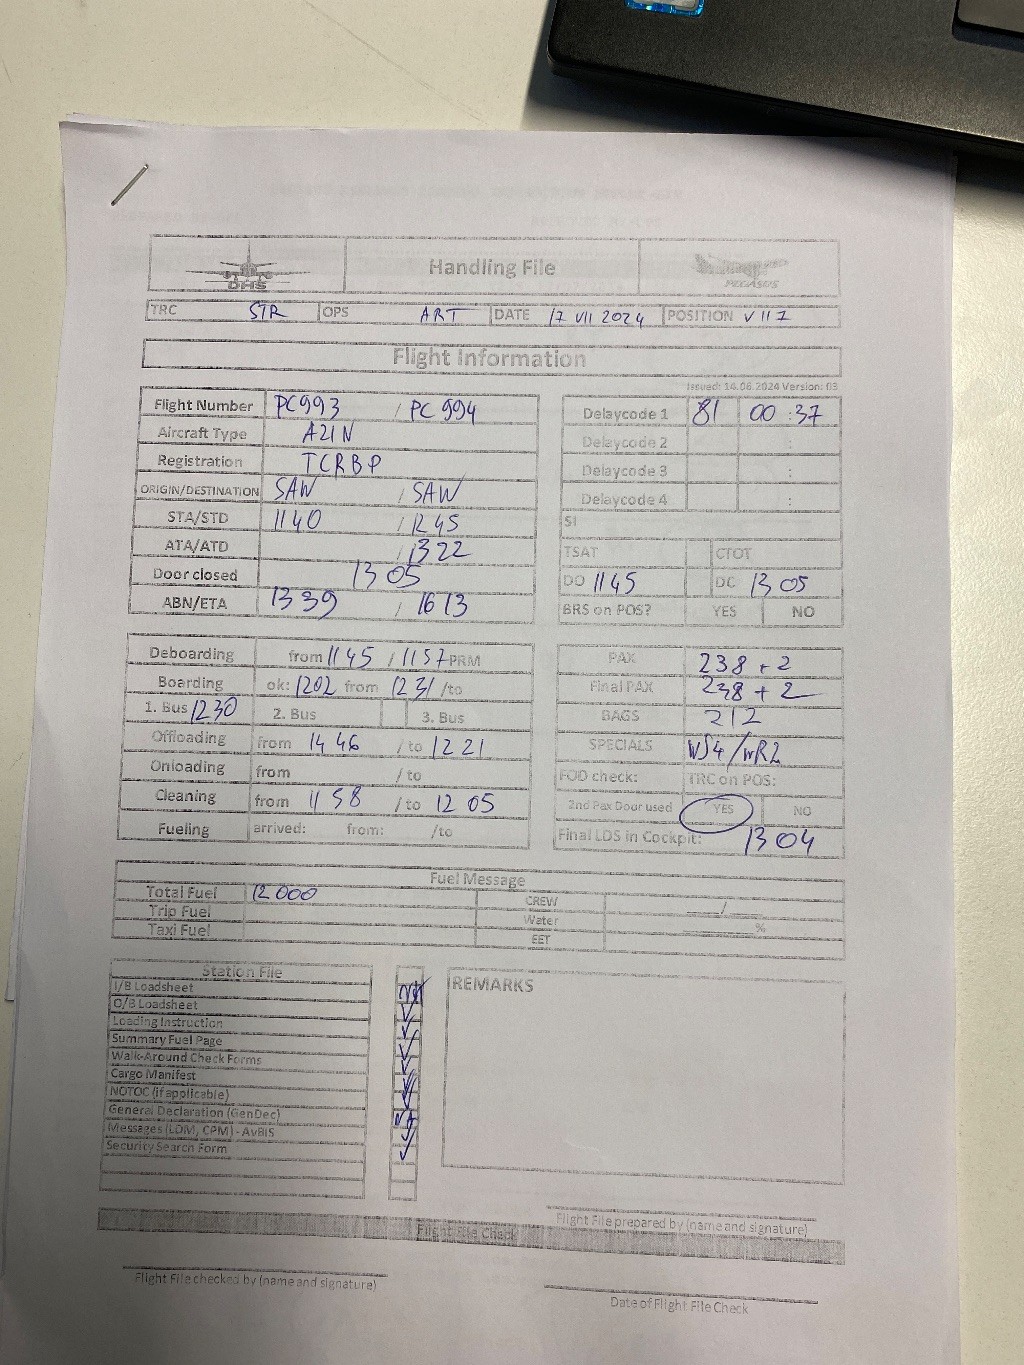 DHS Handling File PEGASUS
TRC STR OPS ART DATE 17 VII 2024 POSITION V117
Flight Information
Issued: 14.06.2024 Version: 03
Flight Number PC993 / PC 994
Aircraft Type A21N
Registration TCRBP
ORIGIN/DESTINATION SAW / SAW
STA/STD 1140 / 1245
ATA/ATD / 1322
Door closed 1305
ABN/ETA 1339 / 1613
Delaycode 1 81 00:37
Delaycode 2 :
Delaycode 3 :
Delaycode 4 :
SI
TSAT CTOT
DO 1145 DC 1305
BRS on POS? YES NO
Deboarding from 1145 / 1157 PRM
Boarding ok: 1202 from 1231 /to
1. Bus 1230 2. Bus 3. Bus
Offloading from 1446 / to 1221
Onloading from / to
Cleaning from 1158 / to 1205
Fueling arrived: from: /to
PAX 238 + 2
Final PAX 238 + 2
BAGS 212
SPECIALS WS4/WR2
FOD check: TRC on POS:
2nd Pax Door used YES NO
Final LDS in Cockpit: 1304
Fuel Message
Total Fuel 12000 CREW ____/____
Trip Fuel Water ________%
Taxi Fuel EET
Station File
I/B Loadsheet
O/B Loadsheet
Loading Instruction
Summary Fuel Page
Walk-Around Check Forms
Cargo Manifest
NOTOC (if applicable)
General Declaration (GenDec)
Messages (LDM, CPM) - AvBIS
Security Search Form
REMARKS
Flight File prepared by (name and signature)
Flight File Check
Flight File checked by (name and signature)
Date of Flight File Check